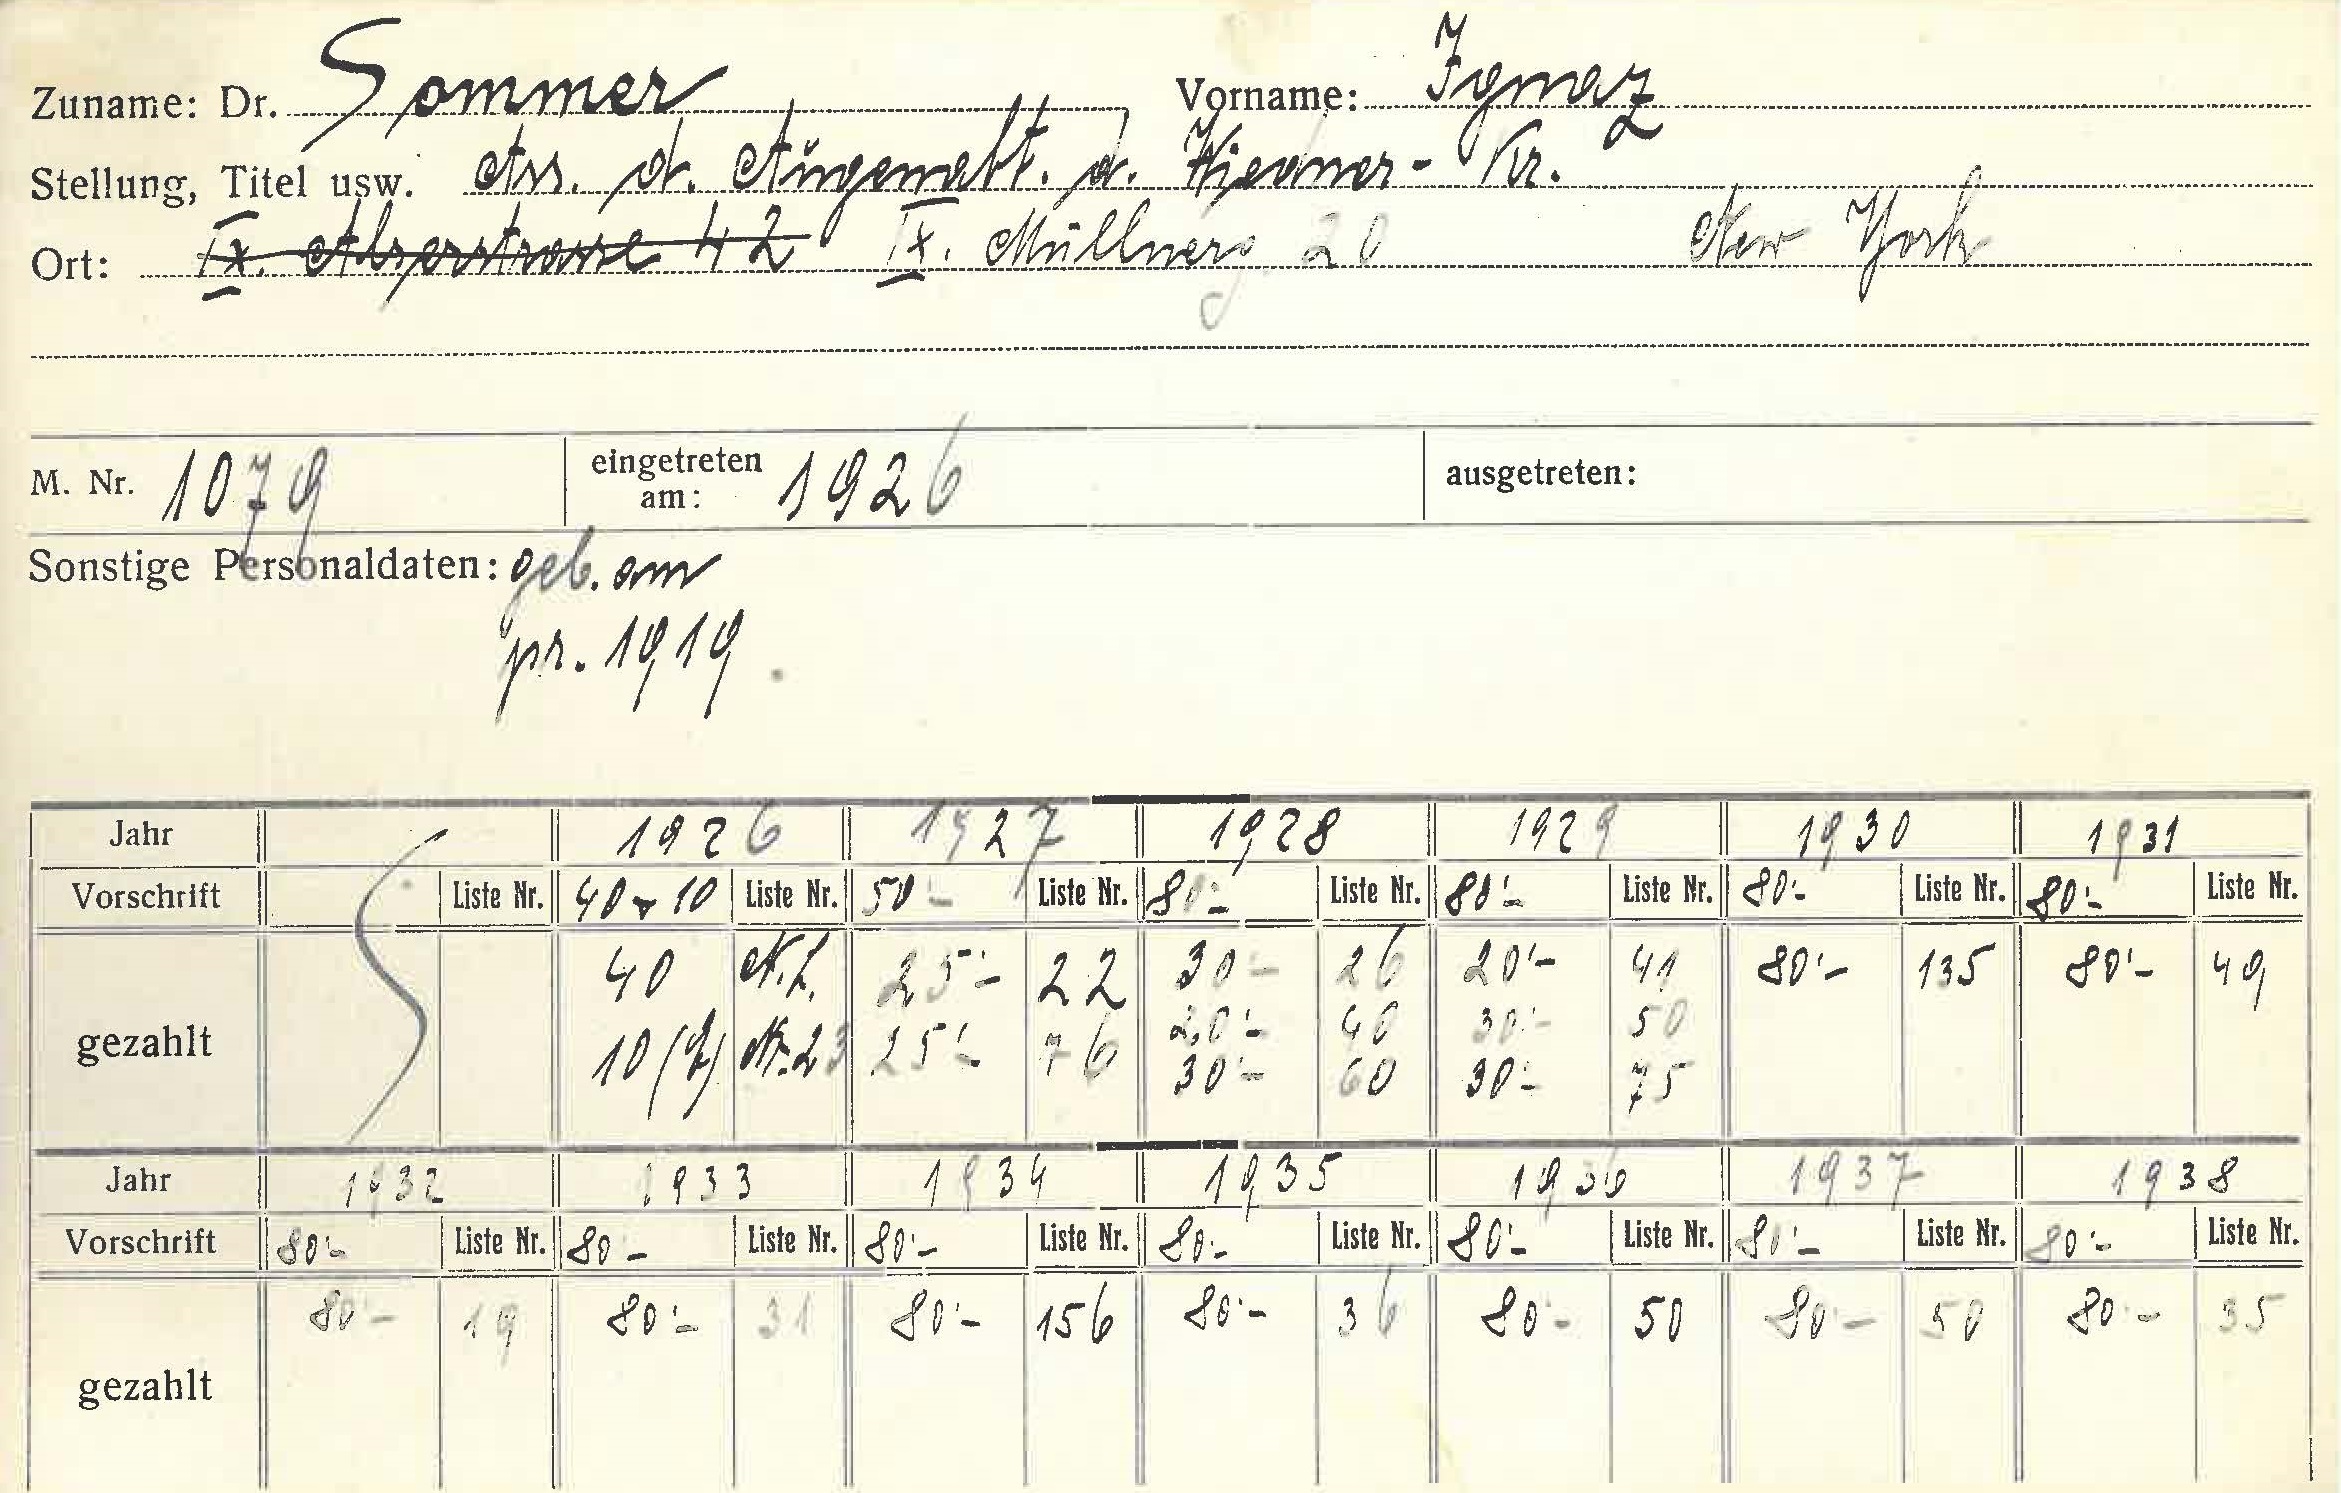 Zuname: Dr. Sommer Vorname: Ignaz
Stellung, Titel usw. Ass. d. Augenabt. d. Wiedner-Kr.
Ort: IX. Alserstrasse 42 IX. Müllnerg. 20 New York
M. Nr. 1079 eingetreten am: 1926 ausgetreten:
Sonstige Personaldaten: geb. am
pr. 1919
Jahr 1926 1927 1928 1929 1930 1931
Vorschrift Liste Nr. 40 + 10 Liste Nr. 50'- Liste Nr. 80'- Liste Nr. 80'- Liste Nr. 80'- Liste Nr. 80'- Liste Nr.
gezahlt 40 25'- 22 30'- 26 20'- 41 80'- 135 80'- 49
10 23 25'- 76 20'- 40 30'- 50
30'- 60 30'- 75
Jahr 1932 1933 1934 1935 1936 1937 1938
Vorschrift 80'- Liste Nr. 80'- Liste Nr. 80'- Liste Nr. 80'- Liste Nr. 80'- Liste Nr. 80'- Liste Nr. 80'- Liste Nr.
gezahlt 80'- 19 80'- 31 80'- 156 80'- 36 80'- 50 80'- 50 80'- 35